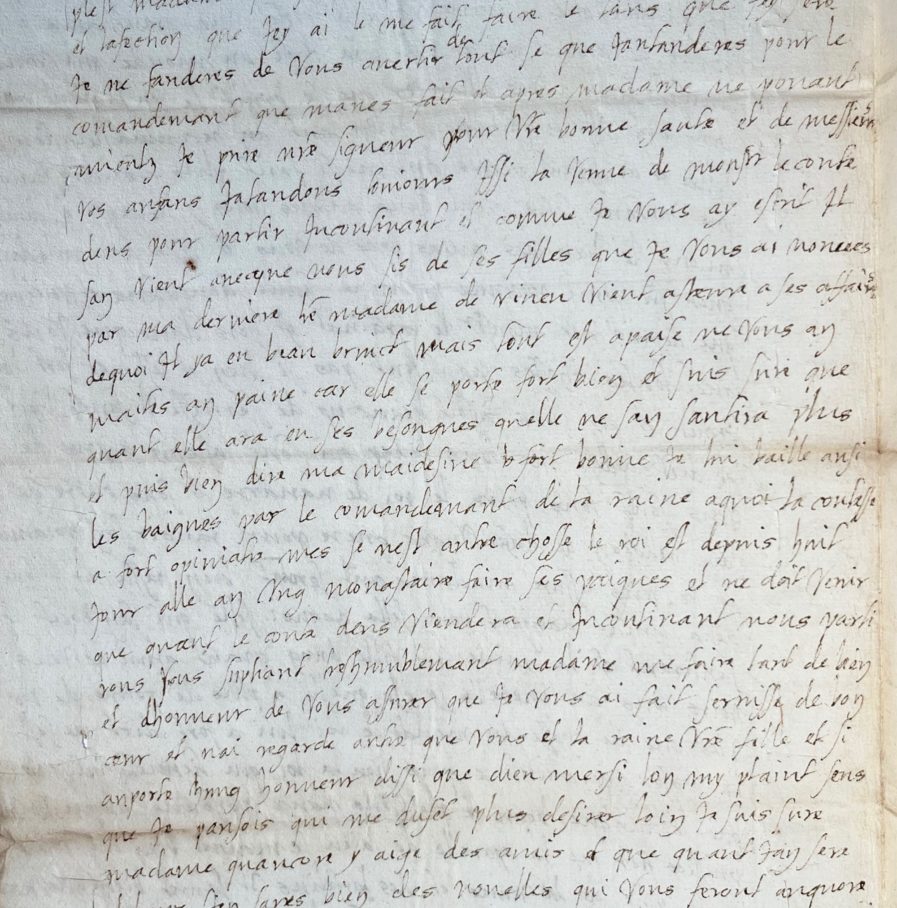 plest madame
et lafection que jey ai le me fait faire le tans que jey sere
je ne fauderes de vous avertir de tout se que jantanderes pour le
comandemant que maves fait et apres madame ne pouant
je prire nre signeur pour vre bonne sante et de messieurs
vos anfans jatandons toujours issi la venue de monsr le conte
dens pour partir incontinant et comme je vous ay escrit il
san vient avecque nous sis de ses filles que je vous ai nonmees
par ma derniere lre madame de vineu vient asteure a ses affaires
dequoi il ya eu bien bruict mais tout est apaise ne vous an
maites an paine car elle se porte fort bien et suis sure que
quant elle ara eu ses besongnes quelle ne san santira plus
et puis bien dire ma maidesine fort bonne je lui baille ausi
les baignes par le comandemant de la raine aquoi la contesse
a fort opiniatre mes se nest autre chosse le roi est depuis huit
jour alle an ung monastaire faire ses paiques et ne doit venir
que quant le conte dens viendera et incontinant nous parti
rons vous supliant treshumblemant madame me faire tant de bien
et dhonneur de vous assurer que je vous ai fait servisse de bon
cœur et nai regarde autre que vous et la raine vre fille et si
anporte ung honneur dissi que dieu mersi lon my plaint sens
que je pansois qui me dust plus desirer loin je suis sure
madame quancore y aige des amis et que quant jan sere
bien des nouelles qui vous feront anquore